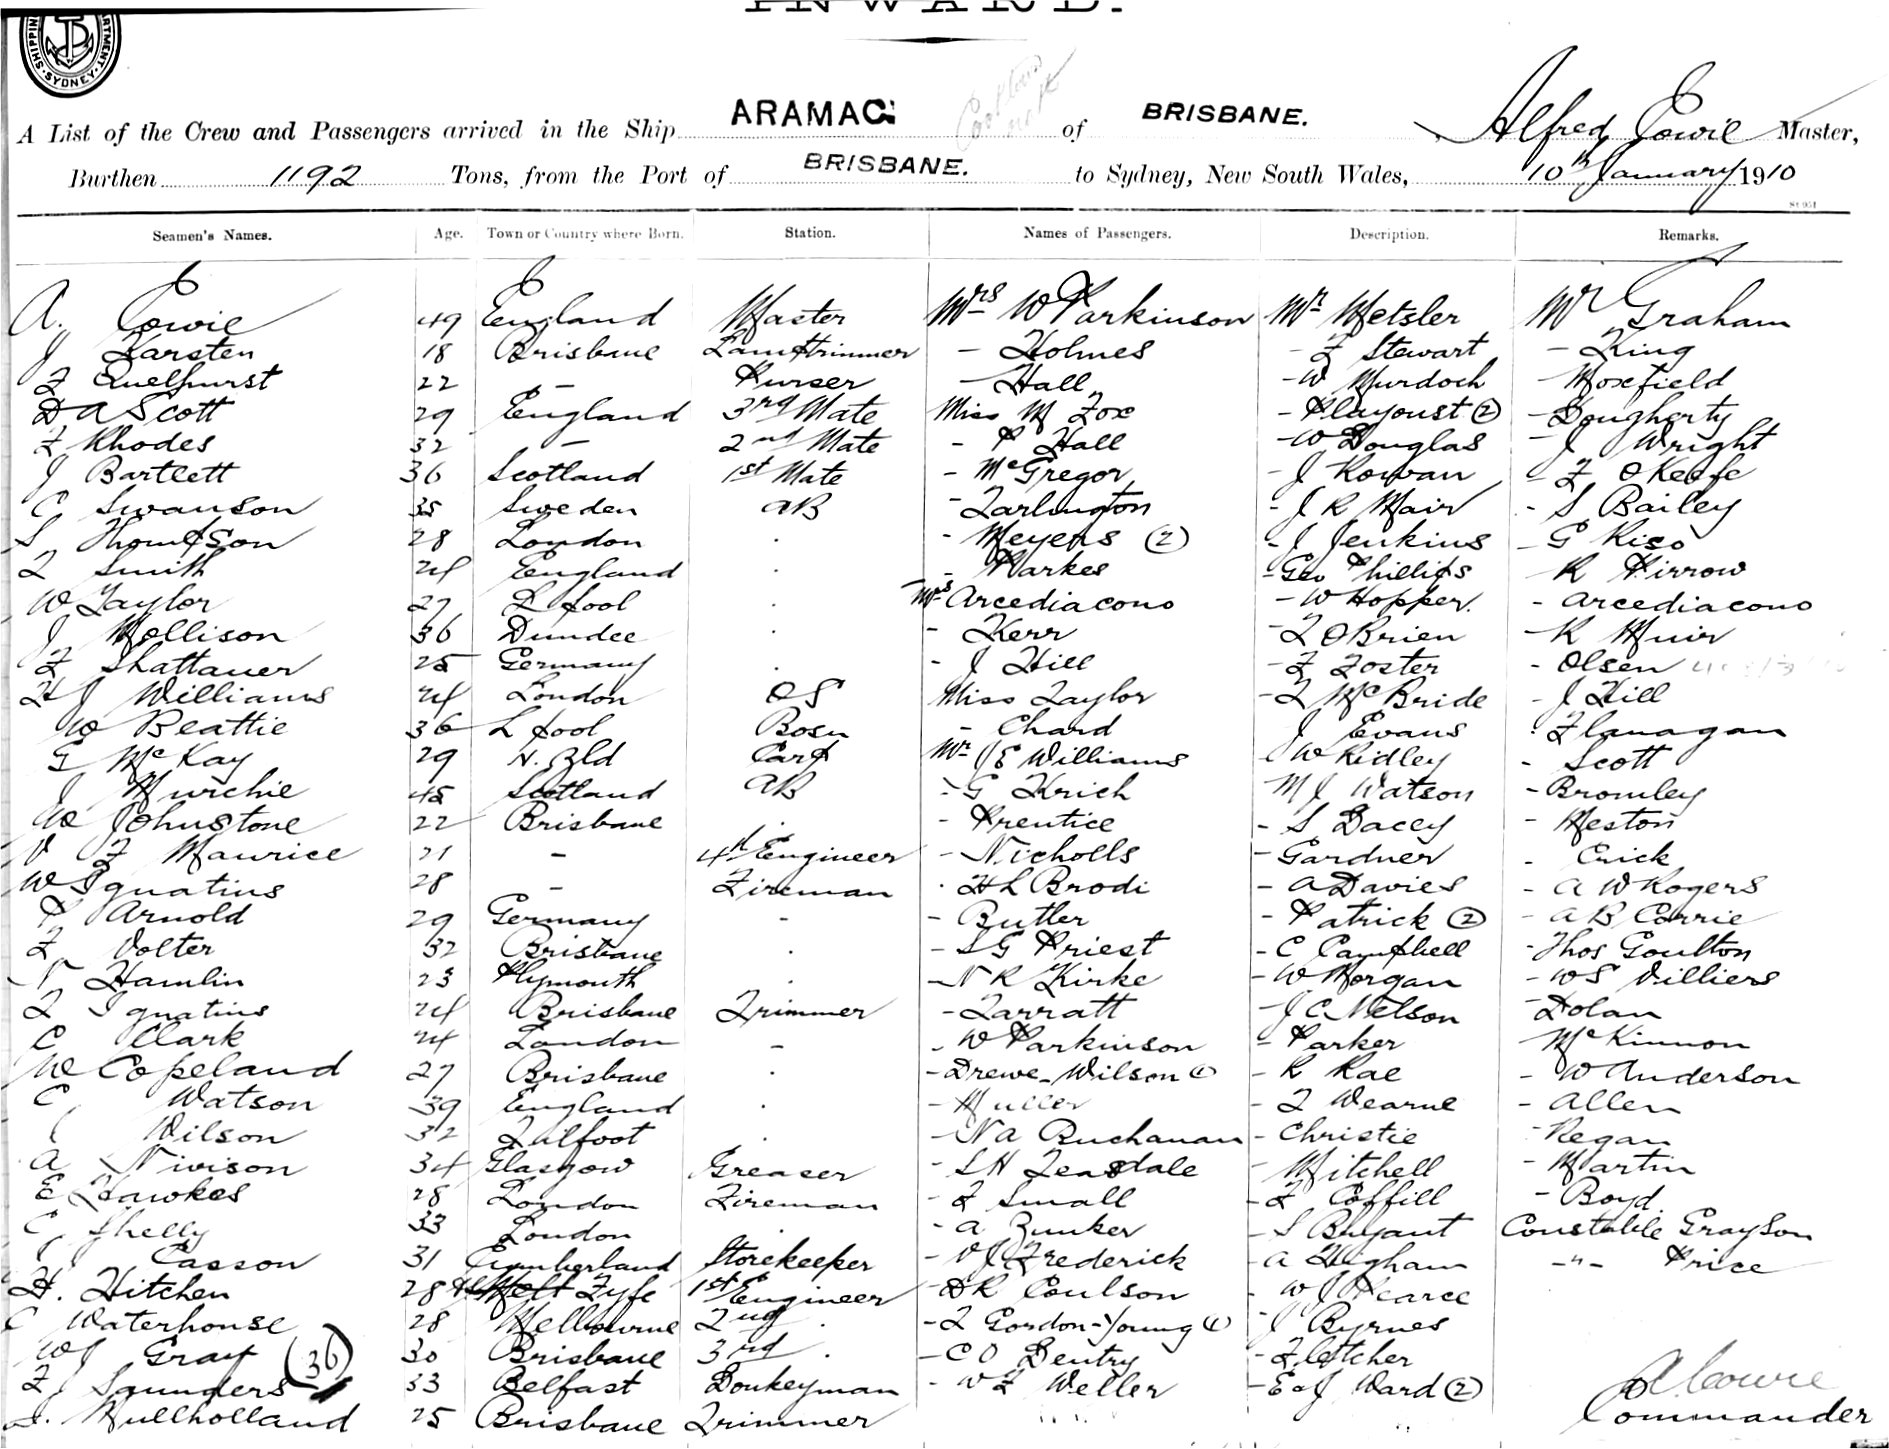 INWARD.
SHIPPING DEPARTMENT SYDNEY
A List of the Crew and Passengers arrived in the Ship ARAMAC of BRISBANE. Alfred Cowie Master,
Burthen 1192 Tons, from the Port of BRISBANE. to Sydney, New South Wales, 10th January 1910
Seamen's Names. Age. Town or Country where Born. Station. Names of Passengers. Description. Remarks.
A. Cowie 49 England Master Mrs W Parkinson Mr Metsler Mr Graham
J Karsten 18 Brisbane Lamptrimmer - Holmes - F Stewart - King
F Quelhurst 22 - Purser - Hall - W Murdoch - Moxefield
D A Scott 29 England 3rd Mate Miss M Fox - Playoust (2) - Dougherty
F Rhodes 32 - 2nd Mate - P Hall - W Douglas - J Wright
J Bartlett 36 Scotland 1st Mate - McGregor - J Rowan - F OKeefe
C Swanson 35 Sweden AB - Tarlington - J R Mair - S Bailey
S Thompson 28 London - Meyers (2) - J Jenkins - G Rico
T Smith 24 England - Parkes - Geo Phillips R Pirrow
W Taylor 27 L pool Mrs Arcediacono - W Hopper. - Arcediacono
J Mollison 36 Dundee - Kerr - T OBrien - R Muir
F Shattauer 25 Germany - J Hill - F Foster - Olsen
H J Williams 24 London OS Miss Taylor - T McBride - J Hill
W Beattie 36 L pool Bosn - Chard J Evans Flanagan
G McKay 29 N. Zld Carp Mr J E Williams - W Ridley - Scott
J Murchie 45 Scotland AB - G Krich M J Watson - Bromley
W Johnstone 22 Brisbane - Prentice - S Dacey - Weston
V F Maurice 21 - 4th Engineer - Nicholls - Gardner - Erick
W Ignatius 28 - Fireman H L Brodi - A Davies - A W Rogers
P Arnold 29 Germany - - Butler - Patrick (2) - A B Corrie
F Volter 32 Brisbane - S G Priest - C Campbell - Thos Goulton
N Hamlin 23 Plymouth - N R Kirke - W Morgan - W S Villiers
T Ignatius 24 Brisbane Trimmer - Tarratt - J C Nelson - Dolan
C Clark 24 London - W Parkinson - Parker McKinnon
W Copeland 27 Brisbane - Drewe-Wilson - R Rae - W Anderson
C Watson 39 England - Muller - T Wearne - Allen
Wilson 32 - N A Buchanan - Christie - Regan
A Nivison 34 Glasgow Greaser - S H Teasdale - Mitchell - Martin
E Hawkes 28 London Fireman - F Small - F Coffill - Boyd
C Shelly 33 London - A Zunker - S Bryant Constable Grayson
J Casson 31 Cumberland Storekeeper - V J Frederick - A Higham -"- Price
H. Hitchen 28 Fyfe 1st Engineer - D R Coulson - W J Pearce
C Waterhouse 28 Melbourne 2nd - T Gordon-Young - J Byrnes
W J Gray 30 Brisbane 3rd - C O Dentry - Fletcher
(36)
F J Saunders 33 Belfast Donkeyman - W F Weller - E & J Ward (2) A Cowie
Mullholland 25 Brisbane Trimmer Commander